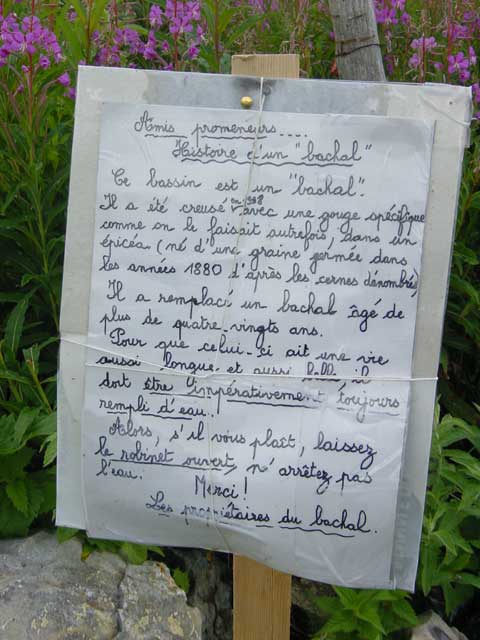 Amis promeneurs....
Histoire d'un "bachal"
Ce bassin est un "bachal".
Il a été creusé en 1998 avec une gouge spécifique
comme on le faisait autrefois, dans un
épicéa (né d'une graine germée dans
les années 1880 d'après les cernes dénombrés)
Il a remplacé un bachal âgé de
plus de quatre-vingts ans.
Pour que celui-ci ait une vie
aussi longue et aussi belle, il
doit être impérativement toujours
rempli d'eau.
Alors, s'il vous plaît, laissez
le robinet ouvert, n'arrêtez pas
l'eau.
Merci!
Les propriétaires du bachal.